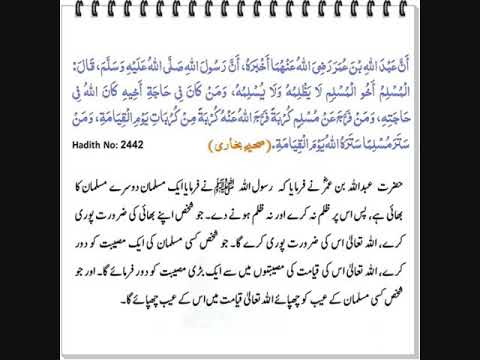 أَنَّ عَبْدَ اللهِ بْنَ عُمَرَ رَضِیَ اللهُ عَنْهُمَا أَخْبَرَهُ، أَنَّ رَسُولَ اللهِ صَلَّى اللهُ عَلَيْهِ وَسَلَّمَ، قَالَ:
الْمُسْلِمُ أَخُو الْمُسْلِمِ لَا يَظْلِمُهُ وَلَا يُسْلِمُهُ، وَمَنْ كَانَ فِي حَاجَةِ أَخِيهِ كَانَ اللهُ فِي
حَاجَتِهِ، وَمَنْ فَرَّجَ عَنْ مُسْلِمٍ كُرْبَةً فَرَّجَ اللهُ عَنْهُ كُرْبَةً مِنْ كُرُبَاتِ يَوْمِ الْقِيَامَةِ، وَمَنْ
سَتَرَ مُسْلِمًا سَتَرَهُ اللهُ يَوْمَ الْقِيَامَةِ۔ (صحیح بخاری) Hadith No: 2442
حضرت عبداللہ بن عمرؓ نے فرمایا کہ رسول اللہ ﷺ نے فرمایا ایک مسلمان دوسرے مسلمان کا
بھائی ہے، پس اس پر ظلم نہ کرے اور نہ ظلم ہونے دے۔ جو شخص اپنے بھائی کی ضرورت پوری
کرے، اللہ تعالیٰ اس کی ضرورت پوری کرے گا۔ جو شخص کسی مسلمان کی ایک مصیبت کو دور
کرے، اللہ تعالیٰ اس کی قیامت کی مصیبتوں میں سے ایک بڑی مصیبت کو دور فرمائے گا۔ اور جو
شخص کسی مسلمان کے عیب کو چھپائے اللہ تعالیٰ قیامت میں اس کے عیب چھپائے گا۔